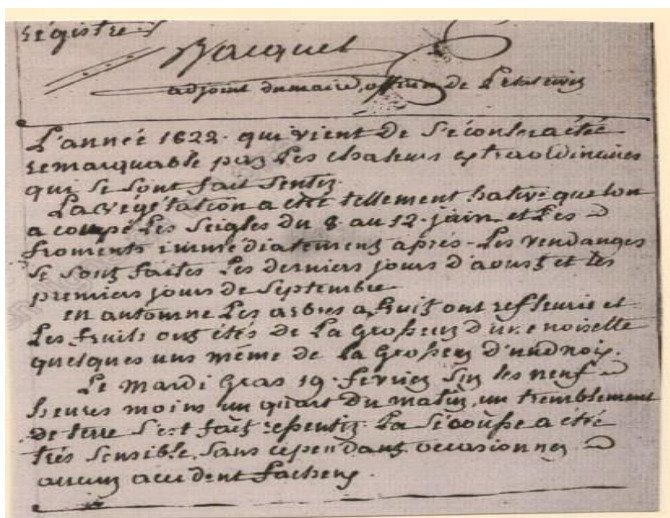 régistre
Jacquet
adjoint du maire, officier de L'etat civil
L'année 1822. qui vient de S'écouler a été
remarquable par Les chaleurs extraordinaires
qui Se Sont fait Sentir.
La végétation a été tellement hative que lon
a coupé Les Seigles du 8 au 12. juin et Les
froments immédiatement après. Les vendanges
Se Sont faites Les derniers jours d'aoust et les
premiers jours de Septembre
en automne Les arbres a fruit ont reffleurie et
Les fruits ont étés de La Grosseur d'une noisette
quelques uns même de La Grosseur d'und noix.
Le Mardi Gras 19. fevrier Sur les neuf
heures moins un quart du matin, un tremblement
de terre S'est fait ressentir. La Sécousse a été
très Sensible, Sans cependant occasionner
aucun accident facheux.